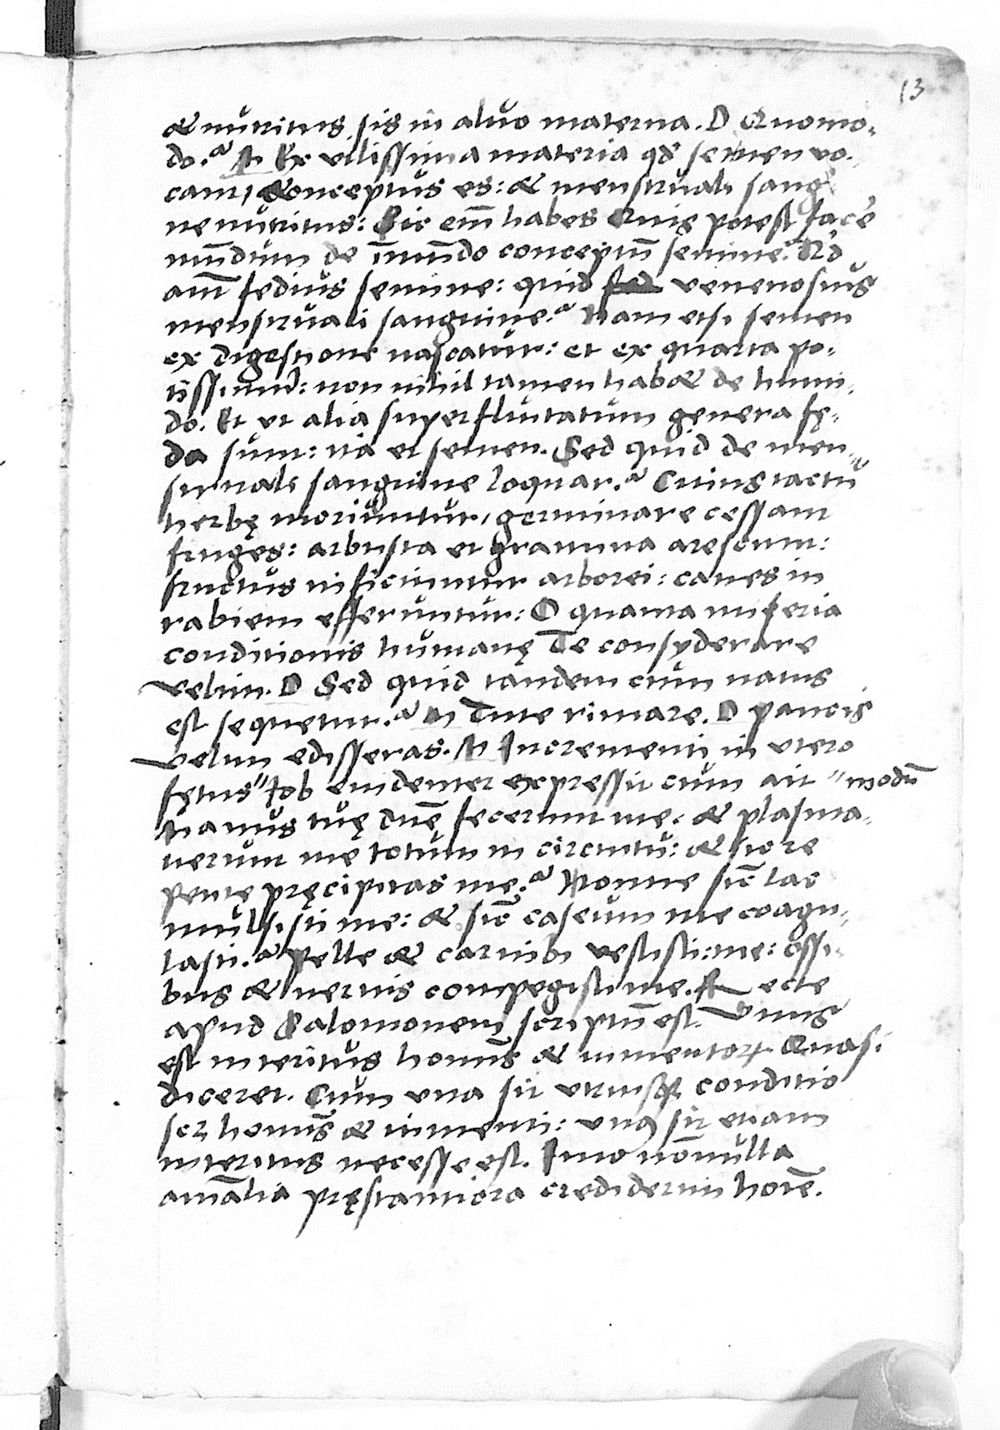 13
& nutritus sis in aluo materna. D Quomo-
do? M Ex vilissima materia qd semen vo-
cant, conceptus es: & menstruali sangui
ne nutritus: Sic em̄ habes Quis potest facē
mūdum de īmūdo conceptū semine? Qd
am̄ fedius semine: quid venenosius
menstruali sanguine? Nam etsi semen
ex digestione nascatur: et ex quarta po-
tissimū: non nihil tamen habet de humi-
do. Et ut alia superfluitatum genera fę-
da sunt: ita et semen. Sed quid de men-
struali sanguine loquar? Cuius tactu
herbę moriuntur, germinare cessant
fruges: arbusta et gramina arescunt:
fructus inficiuntur arborei: canes in
rabiem efferuntur: O quanta miseria
conditionis humanę Te consyderare
velim. D Sed quid tandem cum natus
est sequetur? M Tute rimare. D paucis
velim edisseras. M Incrementi in utero
fętus " Iob euidenter expressit cum ait " modū
Manus tuę dn̄ę fecerunt me: & plasma-
uerunt me totum in circuitu: & sic re
pente pręcipitas me? Nonne sic̄ lac
mulsisti me: & sic̄ caseum me coagu-
lasti? pelle & carnib; vestisti me: ossi-
bus & neruis compegisti me. Recte
apud Salomonem scriptū est. Unus
est interitus homīs & iumentoꝝ Quasi
diceret. Cum una sit utriusqꝫ conditio
scꝫ homīs & iumenti: unꝰ sit etiam
interitus necesse est. Imo nōnulla
aīalia pręstantiora crediderim hoīe.